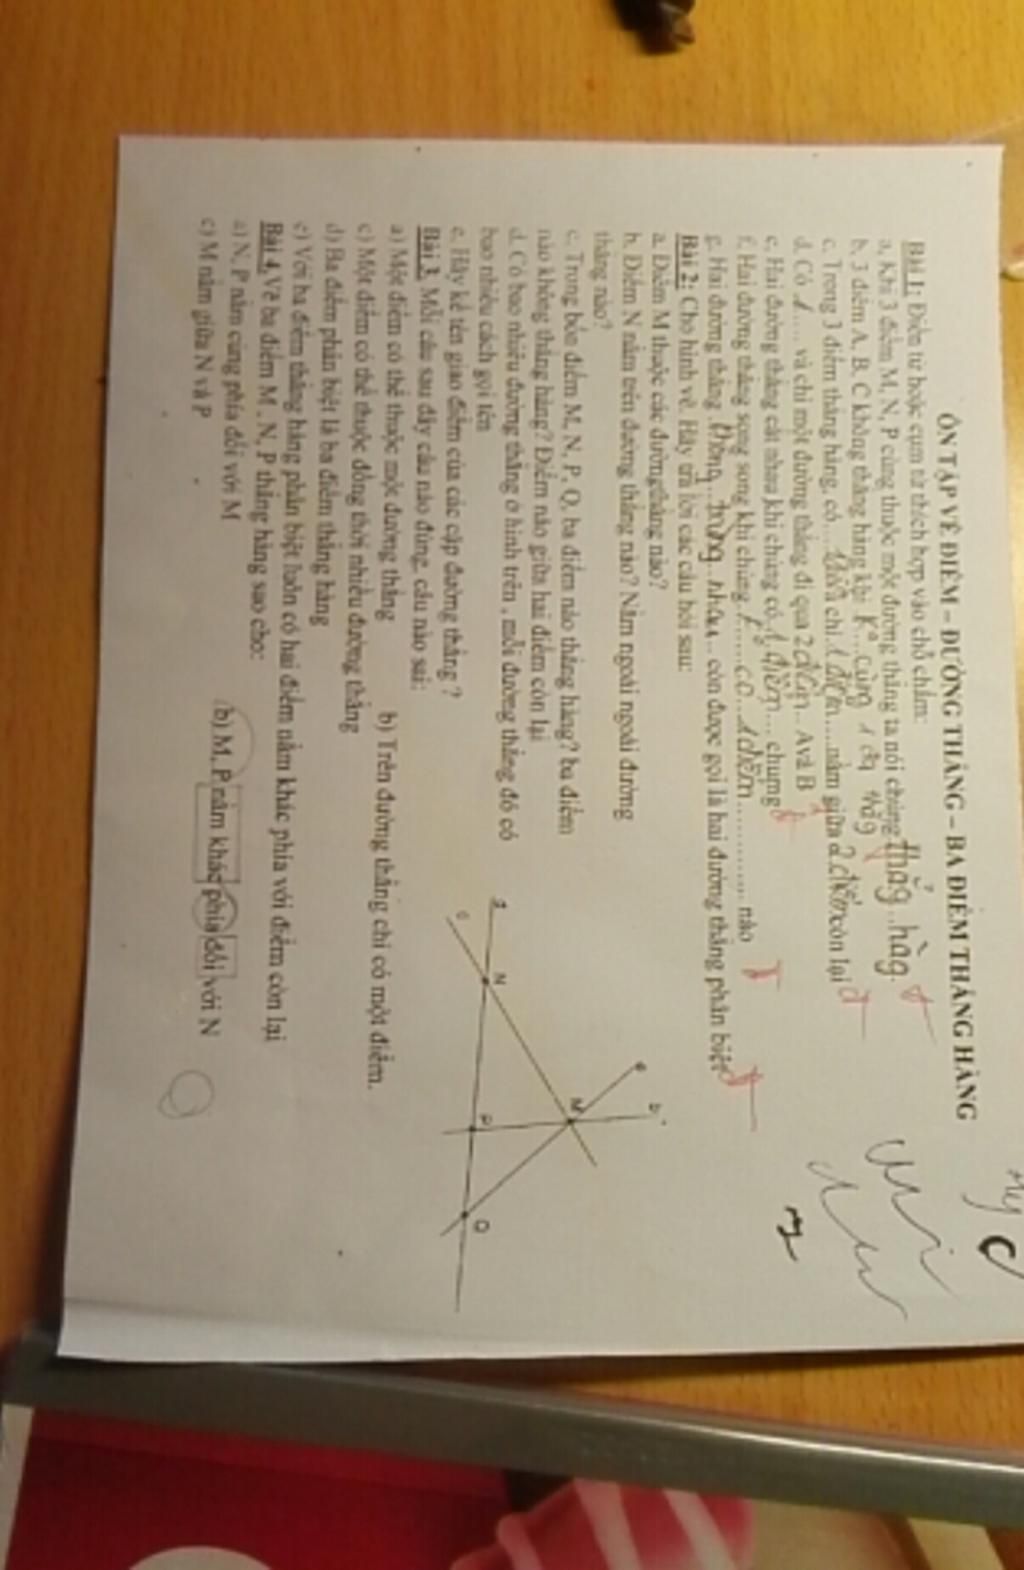 ÔN TẬP VỀ ĐIỂM – ĐƯỜNG THẲNG – BA ĐIỂM THẲNG HÀNG
Bài 1: Điền từ hoặc cụm từ thích hợp vào chỗ chấm:
a, Khi 3 điểm M, N, P cùng thuộc một đường thẳng ta nói chúng thẳng..hàg.
b, 3 điểm A, B, C không thẳng hàng khi K°...cùng 1 đg thẳg
c, Trong 3 điểm thẳng hàng, có.... chỉ..1 điểm....nằm giữa 2 điểm còn lại
d, Có 1.... và chỉ một đường thẳng đi qua 2 điểm.. A và B
e, Hai đường thẳng cắt nhau khi chúng có..1 điểm.... chung
f, Hai đường thẳng song song khi chúng.K°.....có...1 điểm.............. nào
g, Hai đường thẳng .không...trùng..nhau.. còn được gọi là hai đường thẳng phân biệt
Bài 2: Cho hình vẽ. Hãy trả lời các câu hỏi sau:
a. Điểm M thuộc các đường thẳng nào?
b. Điểm N nằm trên đường thẳng nào? Nằm ngoài ngoài đường
thẳng nào?
c. Trong bốn điểm M, N, P, Q, ba điểm nào thẳng hàng? ba điểm
nào không thẳng hàng? Điểm nào giữa hai điểm còn lại
d. Có bao nhiêu đường thẳng ở hình trên , mỗi đường thẳng đó có
bao nhiêu cách gọi tên
e. Hãy kể tên giao điểm của các cặp đường thẳng ?
a
c
N
M
b
P
Q
Bài 3. Mỗi câu sau đây câu nào đúng, câu nào sai:
a) Một điểm có thể thuộc một đường thẳng b) Trên đường thẳng chỉ có một điểm.
c) Một điểm có thể thuộc đồng thời nhiều đường thẳng
d) Ba điểm phân biệt là ba điểm thẳng hàng
e) Với ba điểm thẳng hàng phân biệt luôn có hai điểm nằm khác phía với điểm còn lại
Bài 4. Vẽ ba điểm M , N, P thẳng hàng sao cho:
a) N, P nằm cùng phía đối với M b) M, P nằm khác phía đối với N
c) M nằm giữa N và P